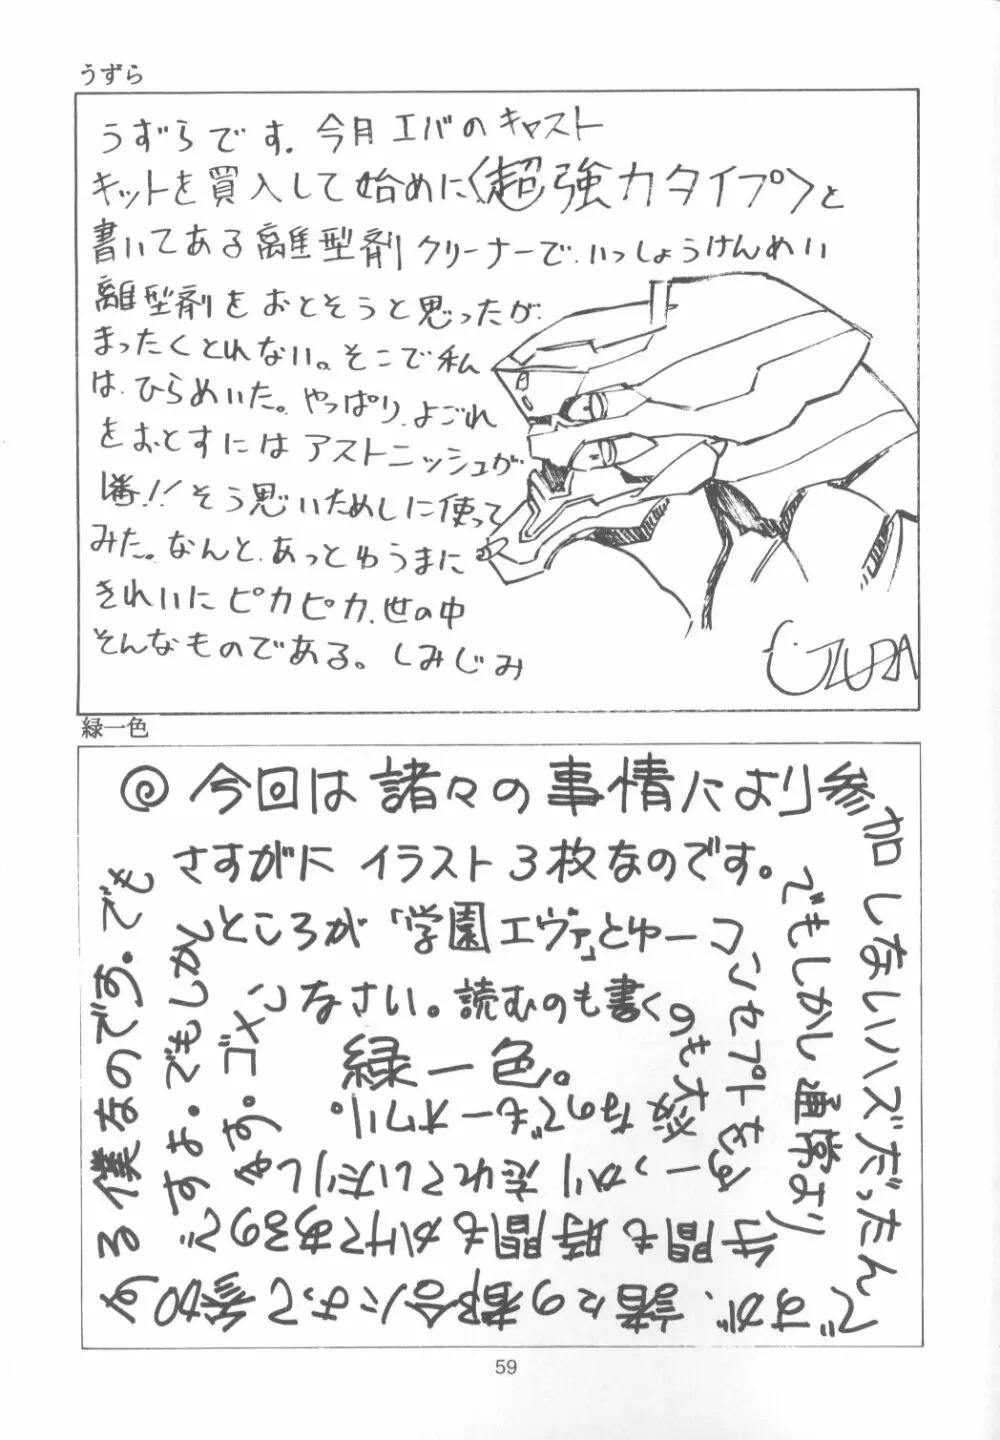 うずら
うずらです。今月エバのキャスト
キットを買入して始めに〈超強力タイプ〉と
書いてある離型剤クリーナーで、いっしょうけんめい
離型剤をおとそうと思ったが、
まったくとれない。そこで私
は、ひらめいた。やっぱり、よごれ
をおとすにはアストニッシュが
1番!!そう思いためしに使って
みた。なんと、あっとゆうまに
きれいにピカピカ、世の中
そんなものである。しみじみ
UZURA
緑一色
◎今回は諸々の事情により参加しないハズだったんで
すが、諸々の都合によって参加す
る僕なのです。でも
さすがにイラスト3枚なのです。
でもしかし通常より
手間も時間もかけてあるので
すよ。でもしかし
ところが「学園エヴァ」とゆーコンセプトをす
っかり忘れていたりし
ます。ゴメン
なさい。読むのも書くのも大変
なのでもーオワリ。
緑一色。
59